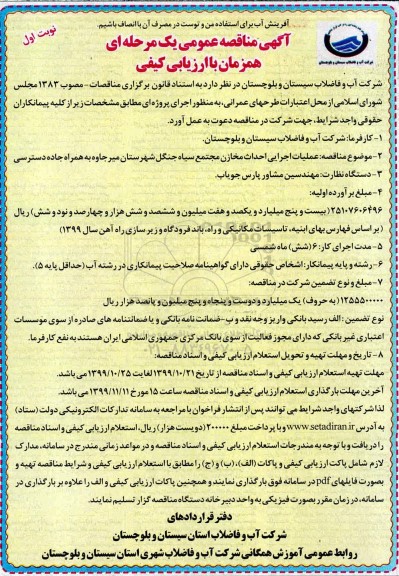 آفرینش آب برای استفاده من و توست در مصرف آن با انصاف باشیم.
نوبت اول
آگهی مناقصه عمومی یک مرحله ای
همزمان با ارزیابی کیفی
شرکت آب و فاضلاب سیستان و بلوچستان در نظر دارد به استناد قانون برگزاری مناقصات - مصوب ۱۳۸۳ مجلس
شورای اسلامی از محل اعتبارات طرحهای عمرانی، به منظور اجرای پروژه ای مطابق مشخصات زیر از کلیه پیمانکاران
حقوقی واجد شرایط، جهت شرکت در مناقصه دعوت به عمل آورد.
۱- کارفرما: شرکت آب و فاضلاب سیستان و بلوچستان.
۲- موضوع مناقصه: عملیات اجرایی احداث مخازن مجتمع سیاه جنگل شهرستان میرجاوه به همراه جاده دسترسی
۳- دستگاه نظارت: مهندسین مشاور پارس جویاب.
۴- مبلغ برآورده اولیه:
۲۵۱۰۷۶۰۶۴۹۶ (بیست و پنج میلیارد و یکصد و هفت میلیون و ششصد و شش هزار و چهارصد و نود و شش) ریال
(بر اساس فهارس بهای ابنیه، تاسیسات مکانیکی و راه، باند فرودگاه و زیرسازی راه آهن سال ۱۳۹۹)
۵- مدت اجرای کار: ۶ (شش) ماه شمسی
۶- رشته و پایه پیمانکار: اشخاص حقوقی دارای گواهینامه صلاحیت پیمانکاری در رشته آب (حداقل پایه ۵).
۷- مبلغ و نوع تضمین شرکت در مناقصه:
۱۲۵۵۵۰۰۰۰۰ (به حروف) یک میلیارد و دویست و پنجاه و پنج میلیون و پانصد هزار ریال
نوع تضمین: الف رسید بانکی واریز وجه نقد و ب- ضمانت نامه بانکی و یا ضمانتنامه های صادره از سوی موسسات
اعتباری غیر بانکی که دارای مجوز فعالیت از سوی بانک مرکزی جمهوری اسلامی ایران هستند به نفع کارفرما.
۸- تاریخ و مهلت تهیه و تحویل استعلام ارزیابی کیفی و اسناد مناقصه:
مهلت تهیه استعلام ارزیابی کیفی و اسناد مناقصه از تاریخ ۱۳۹۹/۱۰/۲۱ لغایت ۱۳۹۹/۱۰/۲۵ می باشد.
آخرین مهلت بارگذاری استعلام ارزیابی کیفی و اسناد مناقصه ساعت ۱۵ مورخ ۱۳۹۹/۱۱/۱۱ می باشد.
لذا شرکتهای واجد شرایط می توانند پس از انتشار فراخوان با مراجعه به سامانه تدارکات الکترونیکی دولت (ستاد)
به آدرس www.setadiran.ir و با پرداخت مبلغ ۲۰۰۰۰۰ (دویست هزار) ریال، استعلام ارزیابی کیفی و اسناد مناقصه
را دریافت و با توجه به مندرجات استعلام ارزیابی کیفی و اسناد مناقصه و در مواعد زمانی مندرج در سامانه، مدارک
لازم شامل پاکت ارزیابی کیفی و پاکات (الف)، (ب) و (ج) را مطابق با استعلام ارزیابی کیفی و شرایط مناقصه تهیه و
بصورت فایلهای pdf در سامانه فوق بارگذاری نمایند و همچنین پاکات ارزیابی کیفی و الف را علاوه بر بارگذاری در
سامانه، در زمان مقرر بصورت فیزیکی به واحد دبیرخانه دستگاه مناقصه گزار تسلیم نمایند.
دفتر قراردادهای
شرکت آب و فاضلاب استان سیستان و بلوچستان
روابط عمومی آموزش همگانی شرکت آب و فاضلاب شهری استان سیستان و بلوچستان